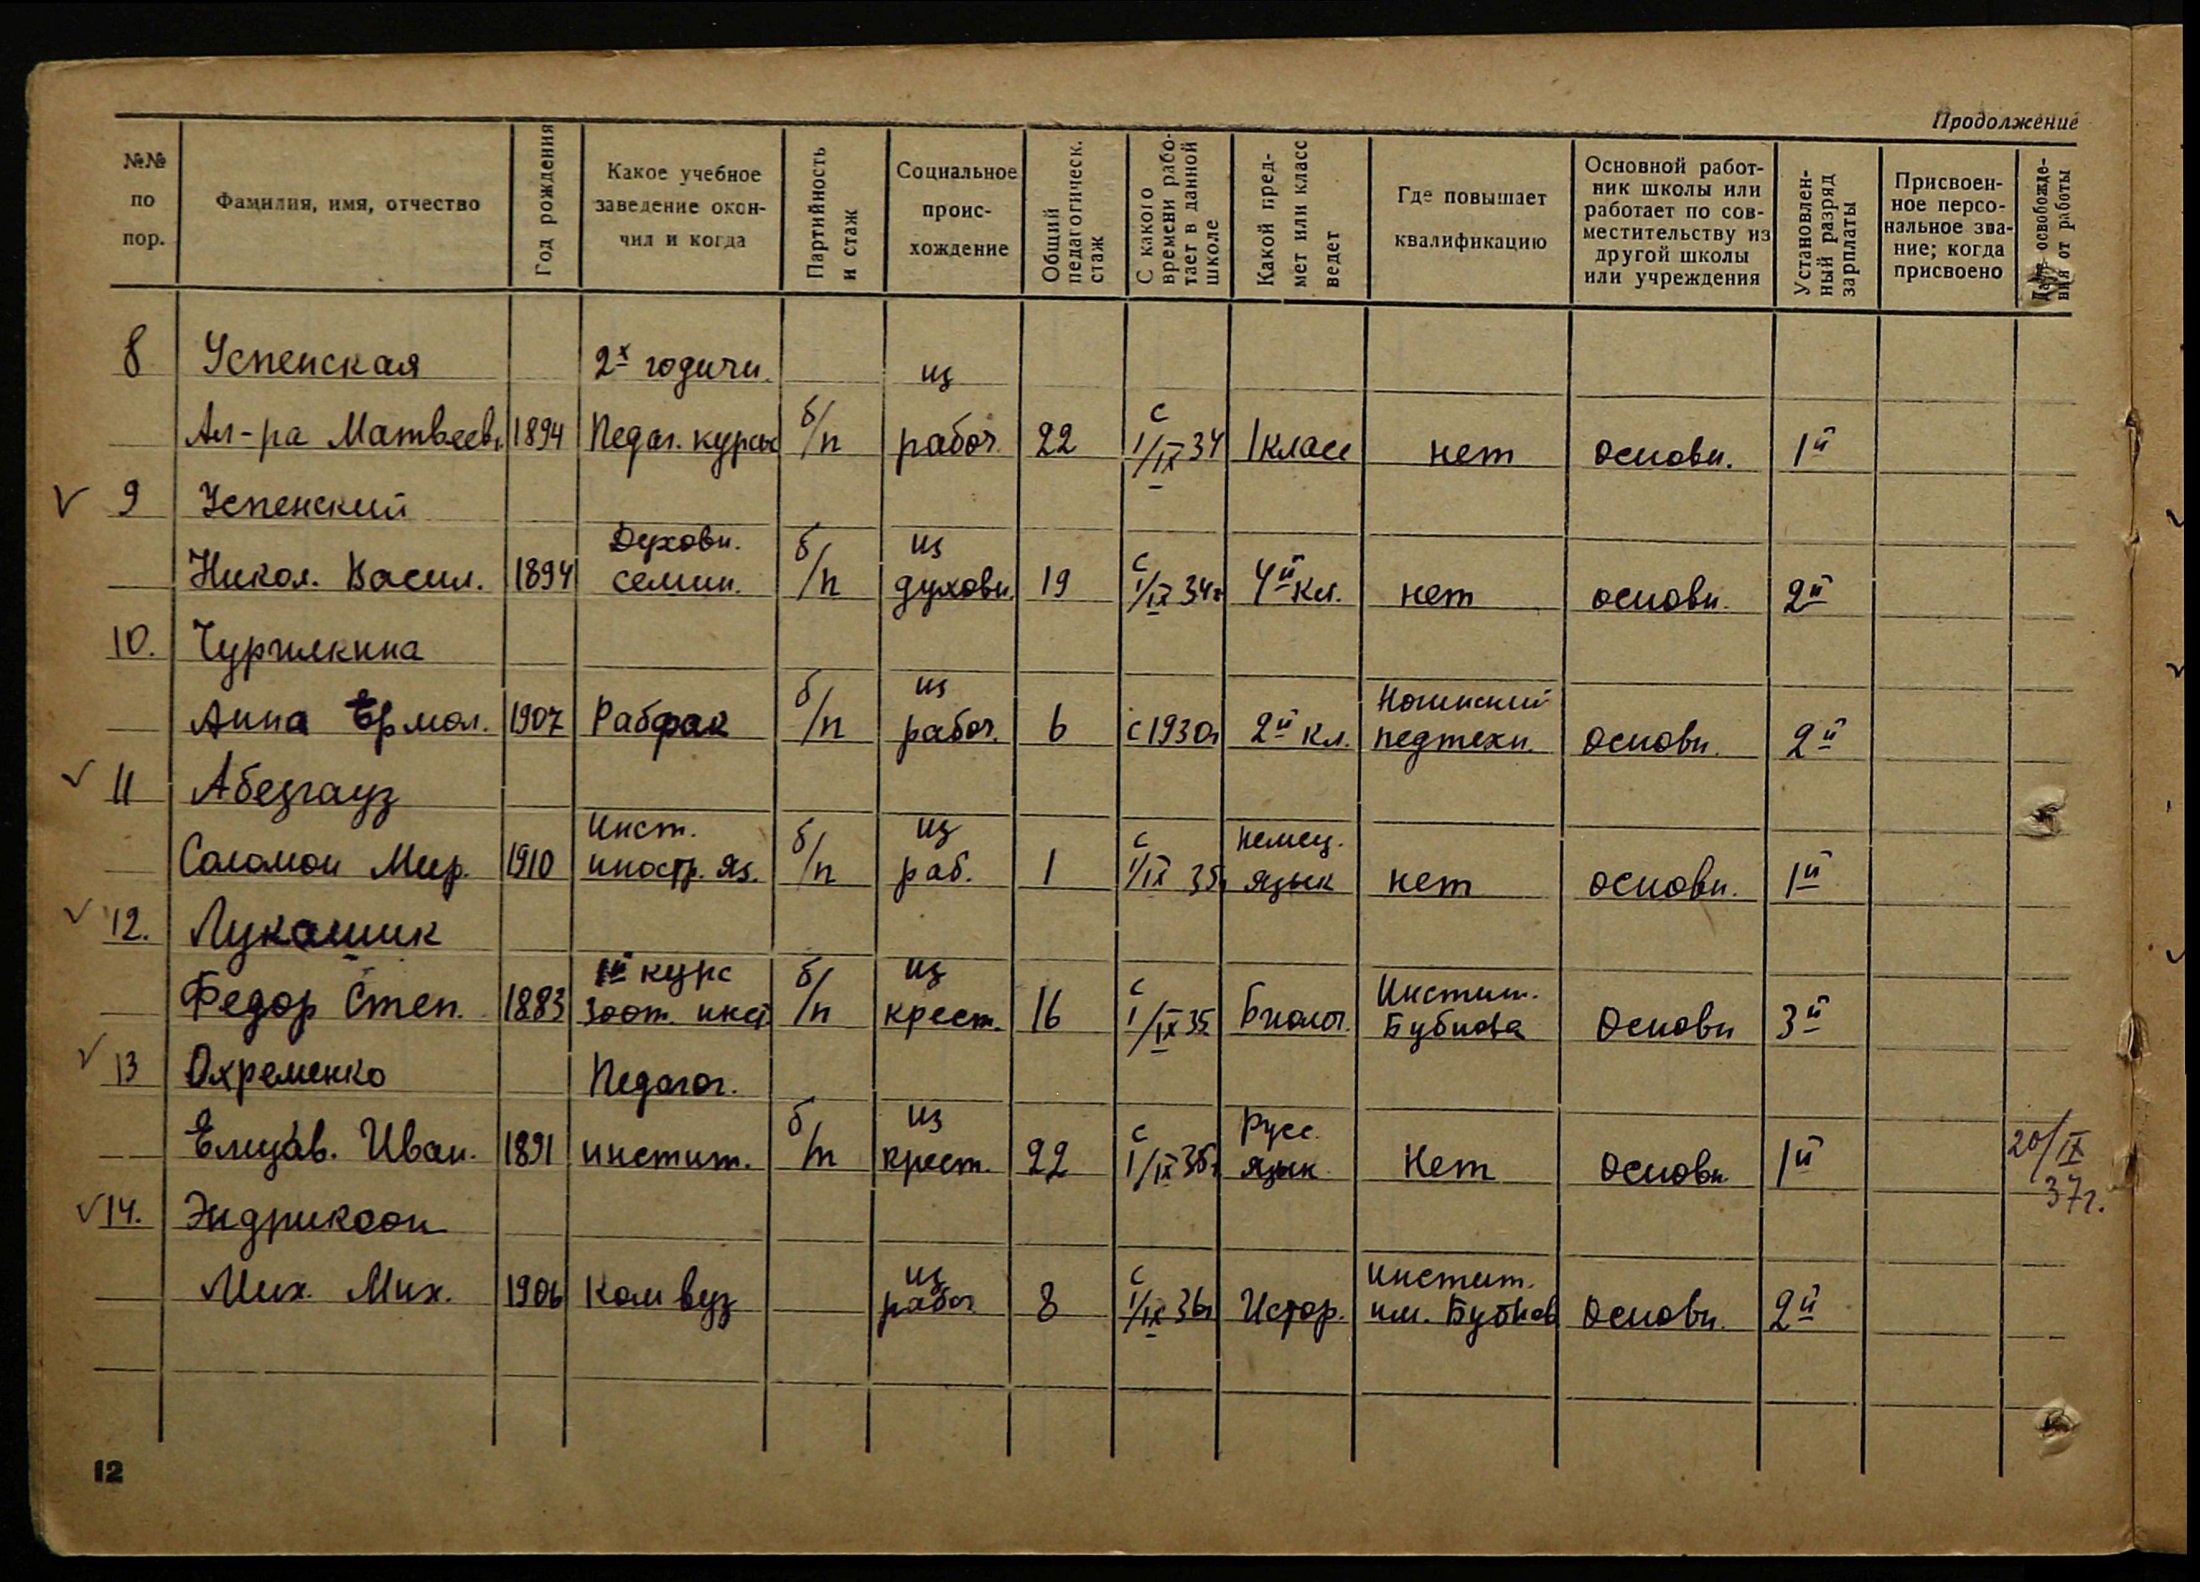 Продолжение
№№ по пор.
Фамилия, имя, отчество
Год рождения
Какое учебное заведение окон-
чил и когда
Партийность и стаж
Социальное проис-
хождение
Общий педагогическ. стаж
С какого времени рабо-
тает в данной школе
Какой пред-
мет или класс ведет
Где повышает квалификацию
Основной работ-
ник школы или работает по сов-
местительству из другой школы или учреждения
Установлен-
ный разряд зарплаты
Присвоен-
ное персо-
нальное зва-
ние; когда присвоено
Дата освобожде-
ния от работы
8 Успенская 2х годичн. из
Ал-ра Матвеевн. 1894 Педаг. курсы б/п рабоч. 22 с 1/IX 34 1 класс нет основн. 1й
9 Успенский Духовн. из
Никол. Васил. 1894 семин. б/п духовн. 19 с 1/IX 34г 4й кл. нет основн. 2й
10. Чурилкина из Ногинский
Анна Ермол. 1907 Рабфак б/п рабоч. 6 с 1930г 2й кл. педтехн. основн. 2й
11 Абезгауз Инст. из немец.
Соломон Мир. 1910 иностр. яз. б/п раб. 1 с 1/IX 35г язык нет основн. 1й
12. Лукашик 1й курс из Институт.
Федор Степ. 1883 Зоот. инст. б/п крест. 16 с 1/IX 35 Биолог. Бубнова Основн 3й
13 Охременко Педагог. из Русс.
Елизав. Иван. 1891 институт. б/п крест. 22 с 1/IX 35г язык Нет основн 1й 20/IX
37г.
14. Эндриксон из институт.
Мих. Мих. 1906 Ком вуз рабоч 8 с 1/IX 36г Истор. им. Бубнов Основн. 2й
12